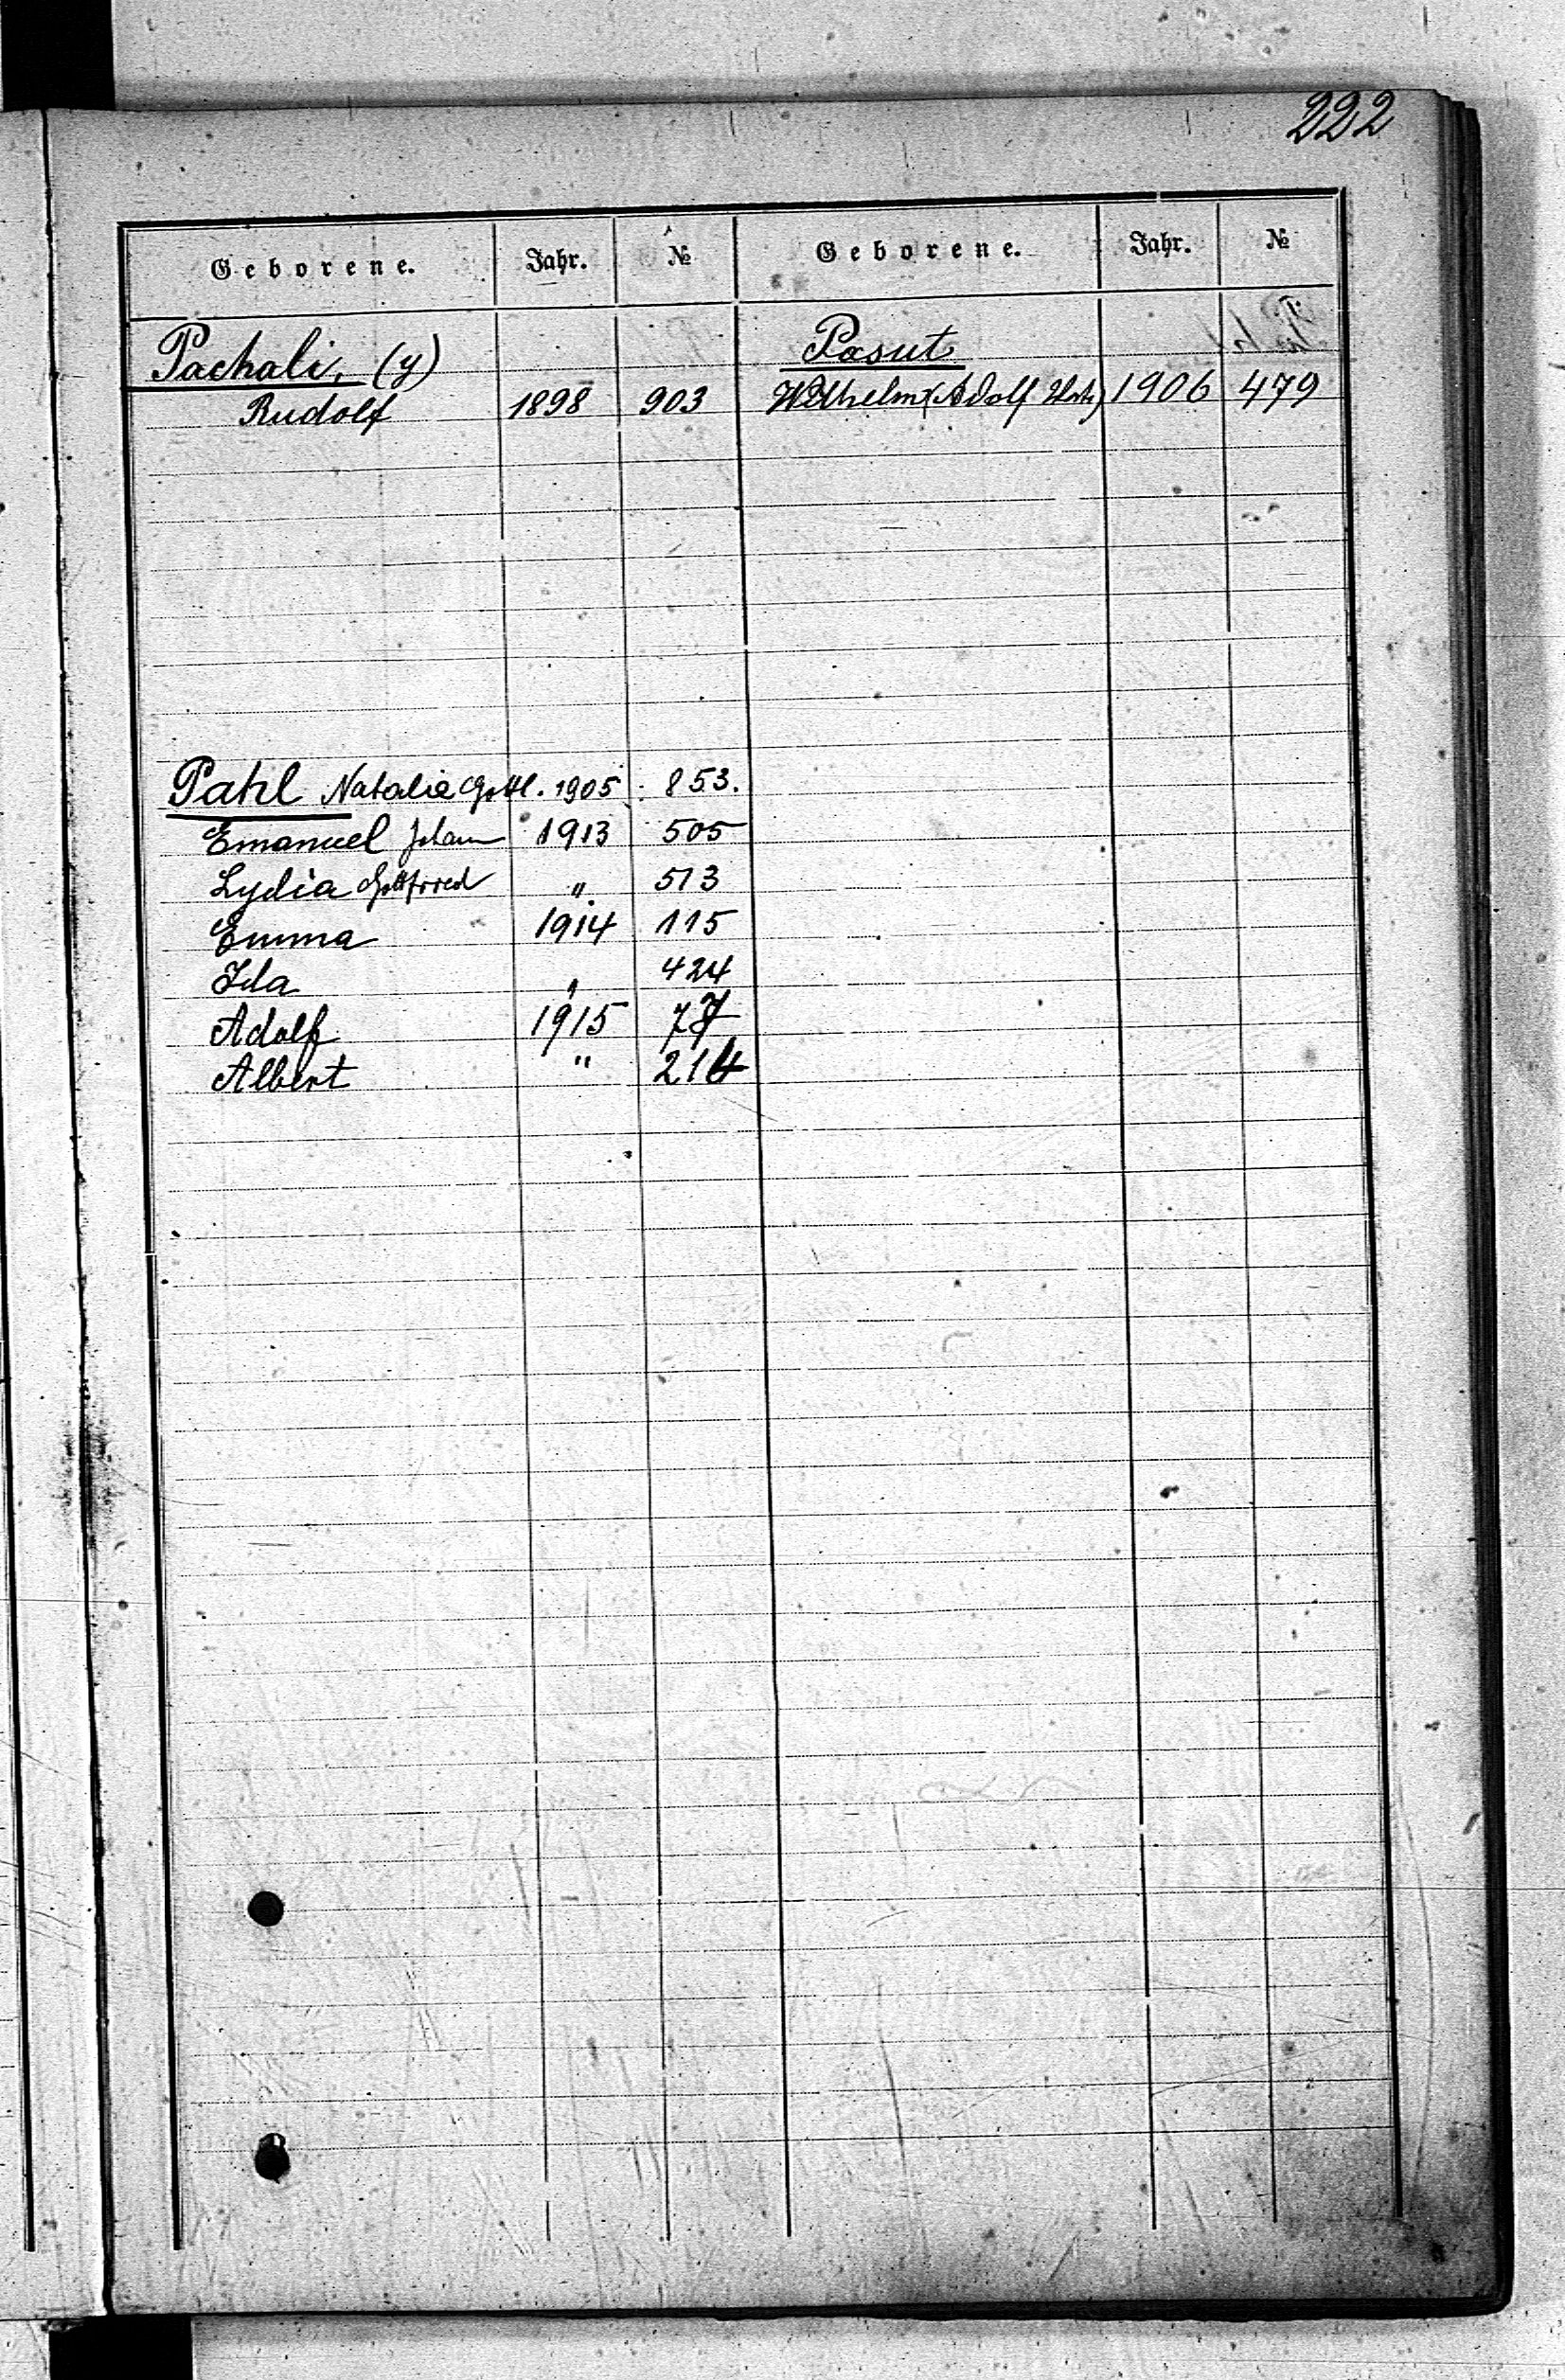 222
Geborene. Jahr. № Geborene. Jahr. №
Pachali, (y)
Rudolf 1898 903
Pasut
Wilhelm (Adolf 1906 479
Pahl Natalie Gottl. 1905 853.
Emanuel Johann 1913 505
Lydia Gottfried " 513
Emma 1914 115
Ida " 424
Adolf 1915 77
Albert " 214